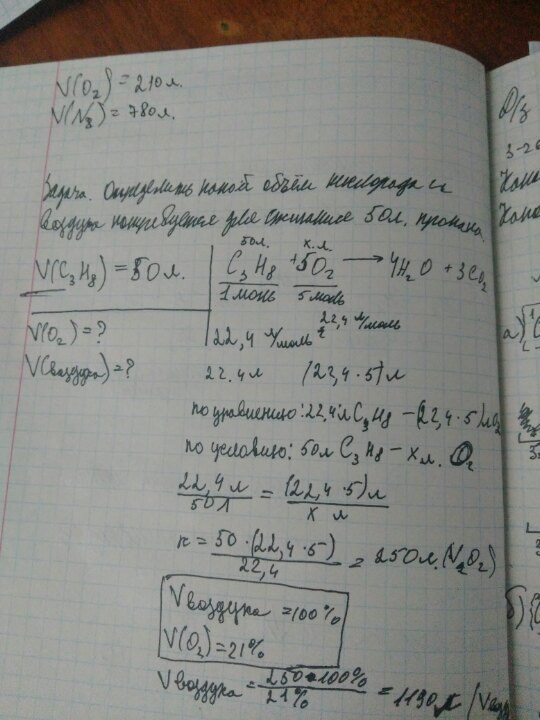 V(O₂) = 210 л.
V(N₃) = 780 л.
Задача. Определить какой объём кислорода и
воздуха потребуется для сжигание 50 л. пропана.
V(C₃H₈) = 50 л.
V(O₂) = ?
V(воздуха) = ?
50л. х.л.
C₃H₈ + 5O₂ → 4H₂O + 3CO₂
1 моль 5 моль
22,4 л/моль 22,4 л/моль
22.4 л (22,4 · 5) л
по уравнению: 22,4 л C₃H₈ – (22,4 · 5) л O₂
по условию: 50 л C₃H₈ – х л. O₂
22,4 л / 50 л = (22,4 · 5) л / х л
х = 50 · (22,4 · 5) / 22,4 = 250 л. (V O₂)
V воздуха = 100%
V(O₂) = 21%
V воздуха = 250 · 100% / 21% = 1190 л / V воз
Д/з
3-2
а)
б)